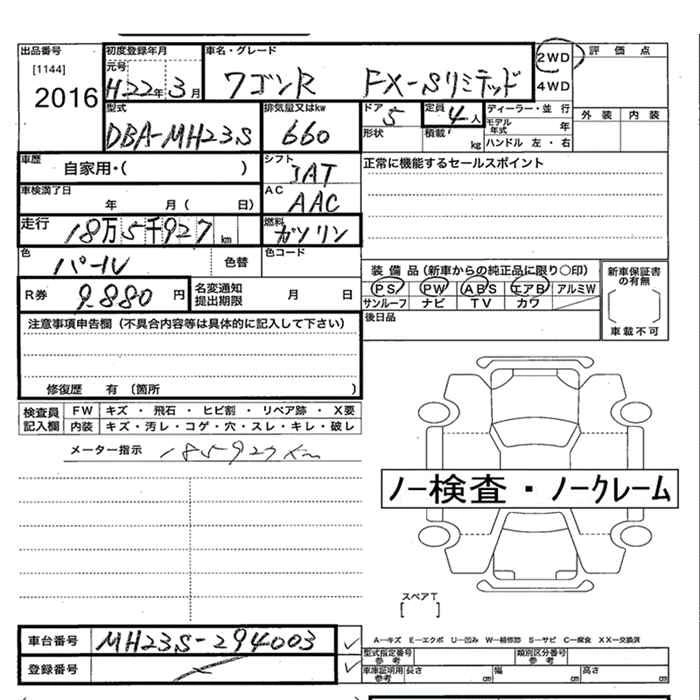 出品番号 初度登録年月 車名・グレード 2WD 評価点
[1144] 元号
2016 H22年3月 ワゴンR FX-Sリミテッド 4WD
型式 排気量又はkw ドア 定員 ディーラー・並行 外装 内装
DBA-MH23S 660 5 4人 モデル年式 年
形状 積載 kg ハンドル 左・右
車歴 自家用・( ) シフト 正常に機能するセールスポイント
車検満了日 AC
年 月( 日) AAC
走行 18万5千927km 燃料 ガソリン
色 パール 色替 色コード 装備品(新車からの純正品に限り○印) 新車保証書の有無
R券 9.880円 名変通知提出期限 月 日 PS PW ABS エアB アルミW
サンルーフ ナビ TV カワ [ ]
注意事項申告欄(不具合内容等は具体的に記入して下さい) 後日品 車載不可
修復歴 有 (箇所 )
検査員記入欄 FW キズ・飛石・ヒビ割・リペア跡・X要
内装 キズ・汚レ・コゲ・穴・スレ・キレ・破レ
メーター指示 185927km
ノー検査・ノークレーム
スペアT
[ ]
車台番号 MH23S-294003 A―キズ E―エクボ U―凹み W―補修跡 S―サビ C―腐食 XX―交換済
型式指定番号 参考 類別区分番号 参考
登録番号 車庫証明用参考 長さ cm 幅 cm 高さ cm